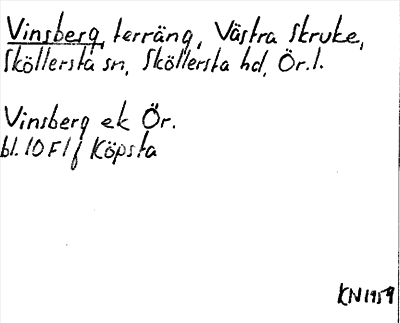 Vinsberg, terräng, Västra Skruke,
Sköllersta sn, Sköllersta hd, Ör. l.
Vinsberg ek Ör.
bl. 10F1f Köpsta
KN1959